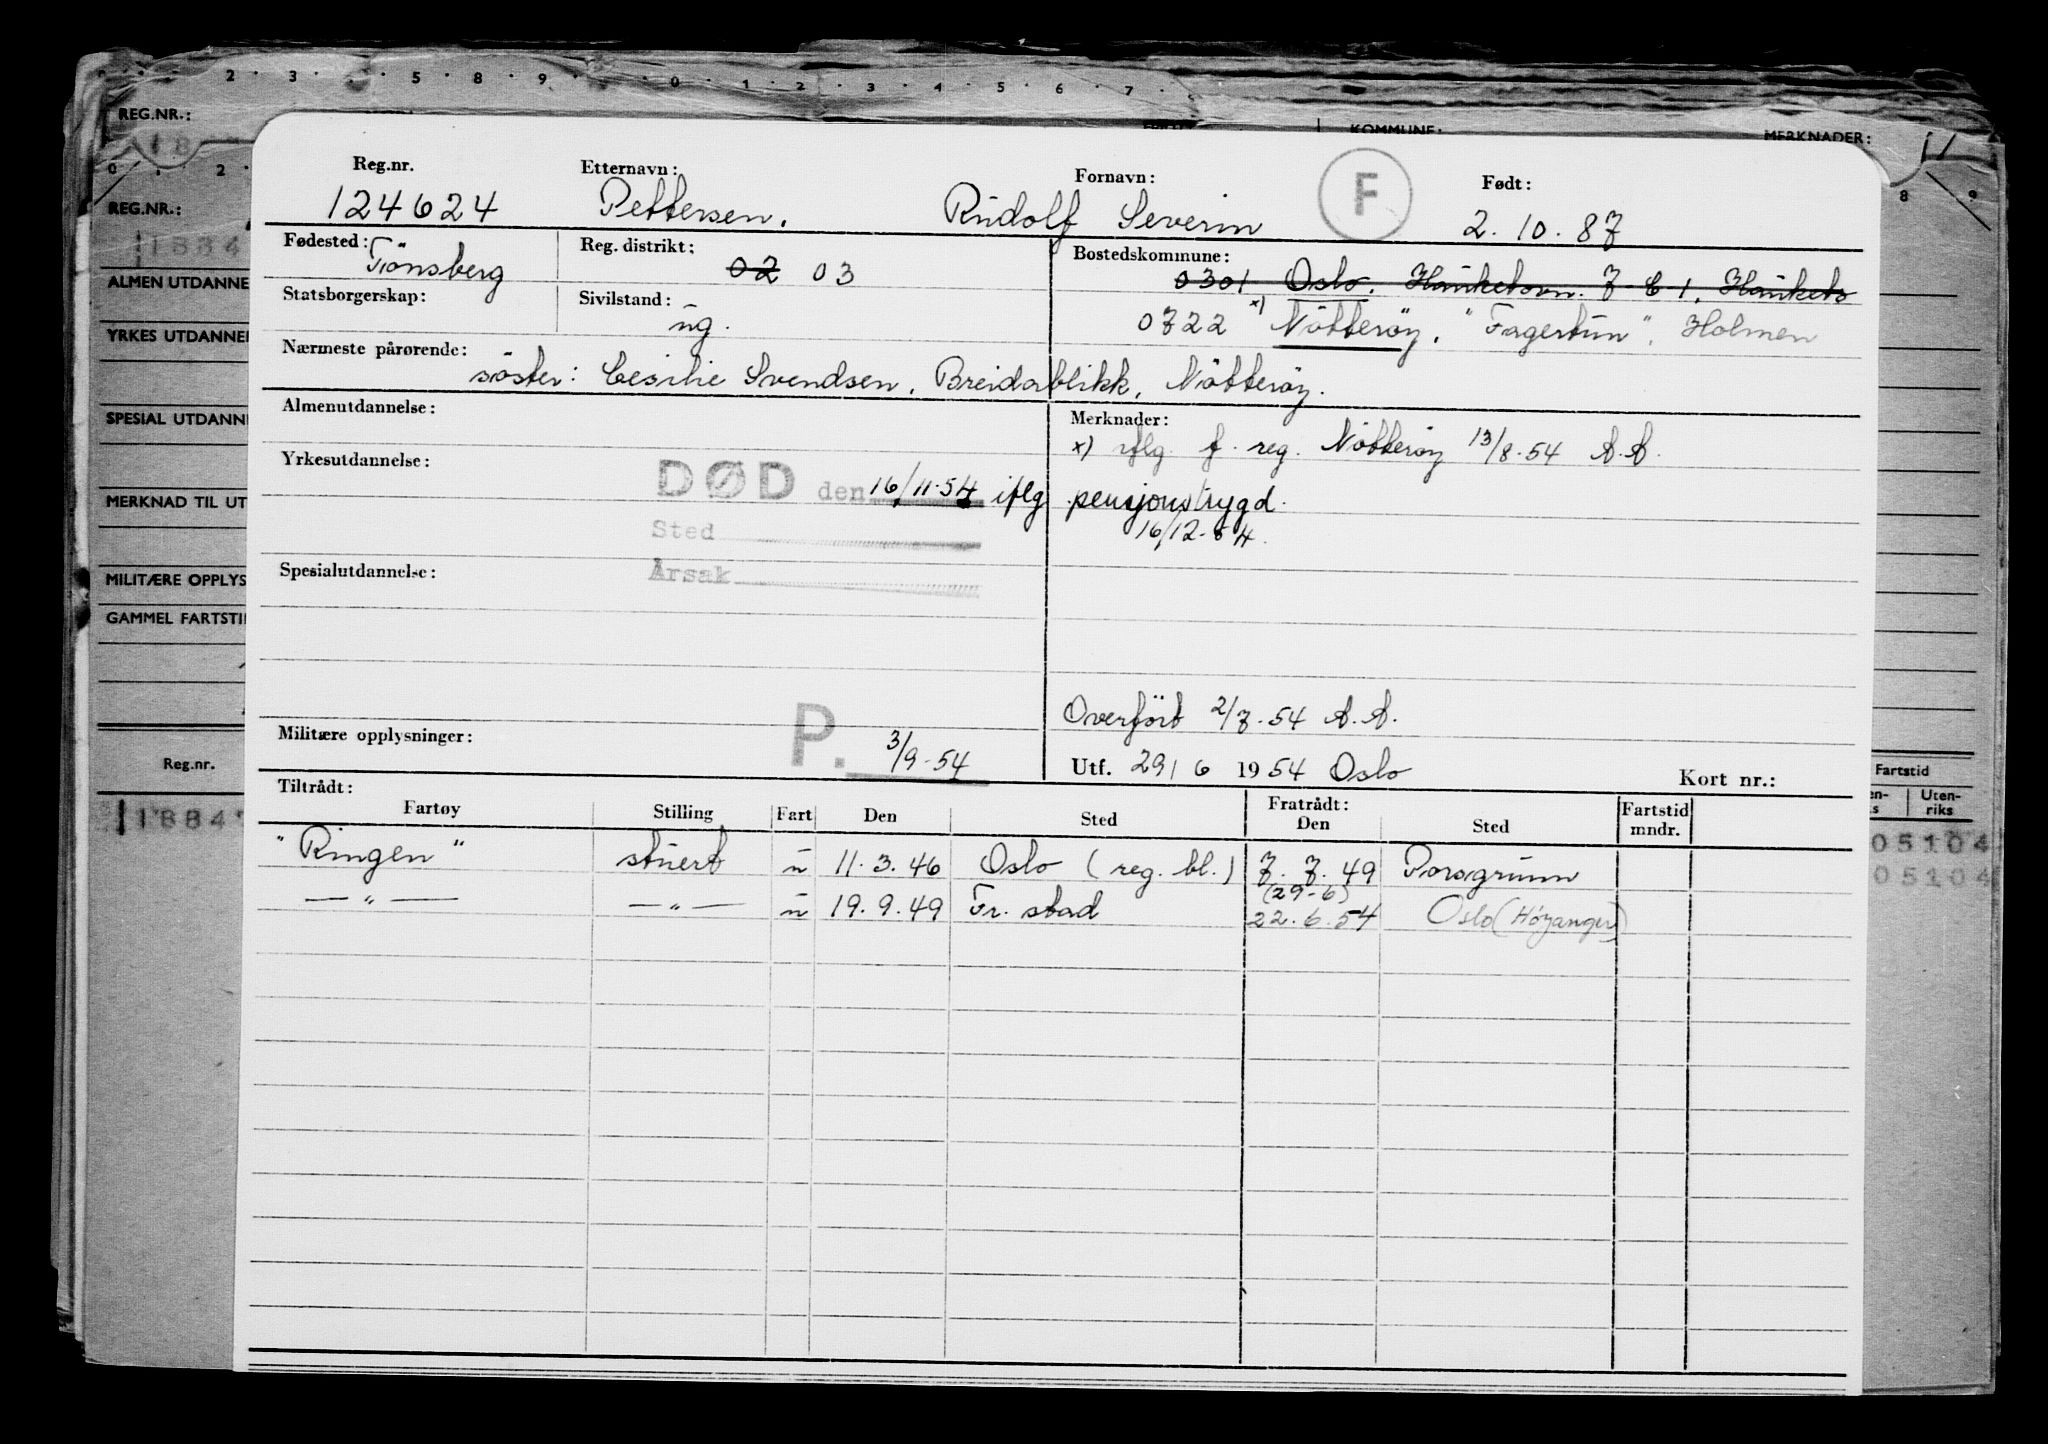 2 . 3 . . 5 . 8 . 9 . . 0 . 1 . 2 . 3 . 4 . 5 . 6 . 7 .
REG.NR.:
KOMMUNE:
MERKNADER:
11
0 . . 2
8 9
REG.NR.:
1884
ALMEN UTDANNE
YRKES UTDANNEL
SPESIAL UTDANNE
MERKNAD TIL UT
MILITÆRE OPPLYS
GAMMEL FARTSTI
Reg.nr.
1884
Fartstid
Uten-
riks
05104
05104
Reg.nr. Etternavn: Fornavn: F Født:
124624 Pettersen. Rudolf Severin 2. 10. 87
Fødested: Reg. distrikt: Bostedskommune:
Tönsberg 02 03 0301 Oslo. Hauketovn. 7 C 1. Hauketo
Statsborgerskap: Sivilstand:
ug. 0722 x) Nötteröy. "Fagertun". Holmen
Nærmeste pårørende:
söster: Cesilie Svendsen. Breidablikk. Nötteröy.
Almenutdannelse: Merknader:
x) iflg. f. reg. Nötteröy 13/8-54 A.A.
Yrkesutdannelse:
DØD den 16/11-54 iflg pensjonstrygd.
Sted 16/12-54.
Spesialutdannelse: Årsak
Overfört 2/7-54 A.A.
Militære opplysninger: P. 3/9-54
Utf. 29/6 1954 Oslo Kort nr.:
Tiltrådt: Fratrådt:
Fartøy Stilling Fart Den Sted Den Sted Fartstid mndr.
"Ringen" stuert u 11.3.46 Oslo (reg. bl.) 7.7.49 Porsgrunn
— " — — " — u 19.9.49 Fr. stad (29-6) 22.6.54 Oslo (Höyanger)